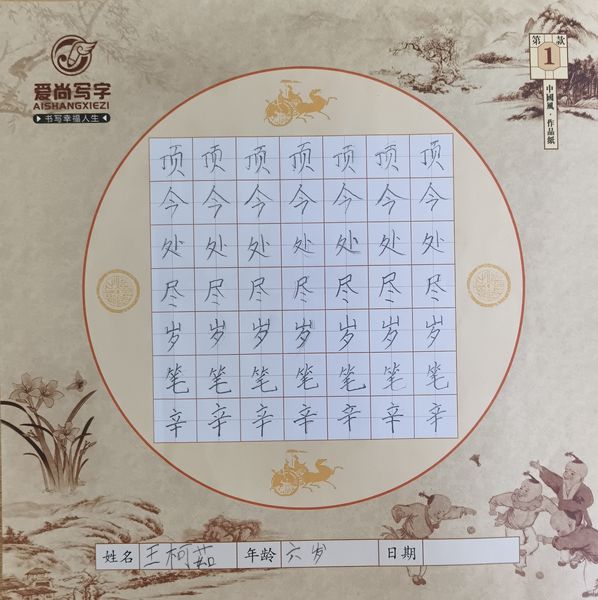 爱尚写字
AISHANGXIEZI
书写幸福人生
第1款
中國風·作品紙
顶顶顶顶顶顶顶
今今今今今今今
处处处处处处处
尽尽尽尽尽尽尽
岁岁岁岁岁岁岁
笔笔笔笔笔笔笔
辛辛辛辛辛辛辛
姓名 王柯茹 年龄 六岁 日期